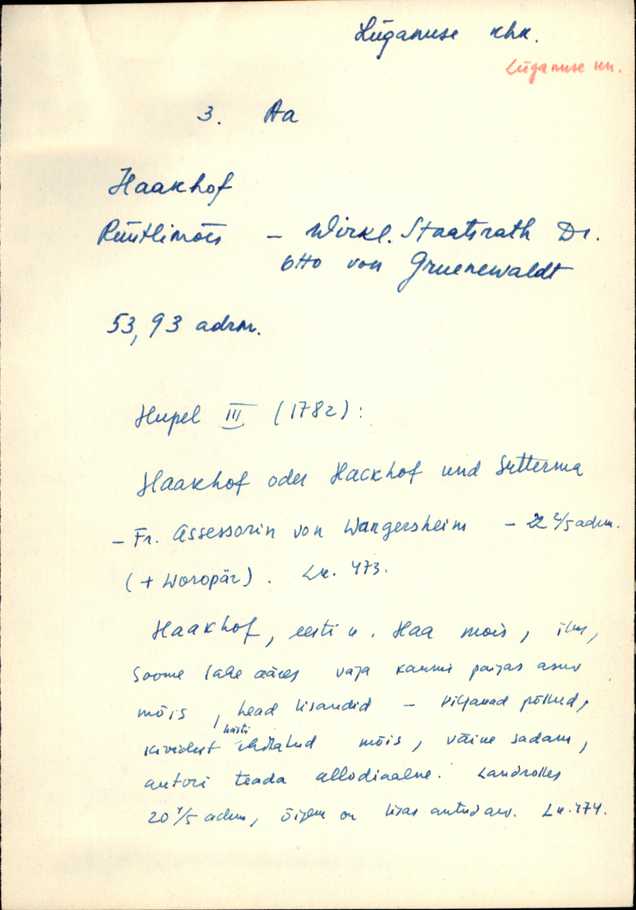 Lüganuse khk.
Lüganuse kn.
3. Aa
Haakhof
Rüütlimõis - Wirkl. Staatsrath Dr.
Otto von Gruenewaldt
53,93 adrm.
Hupel III (1782):
Haakhof oder Hackhof und Sitterma
- Fr. Assessorin von Wangersheim - 22 4/5 adrm.
(+ Woropär). Lk. 473.
Haakhof, eesti k. Haa mois, ilus,
Soome lahe ääres väga kaunis paigas asuv
mõis, head lisandid - viljakad põllud,
kividest hästi ehitatud mõis, väike sadam,
autori teada allodiaalne. Landrolles
20 4/5 adrm, õigem on lisas antud arv. Lk. 474.